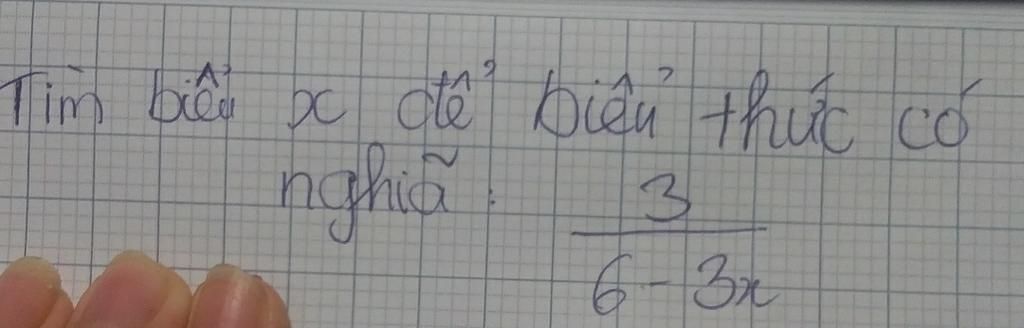 Tìm biểu x để biểu thức có
nghiã:
3
6 - 3x